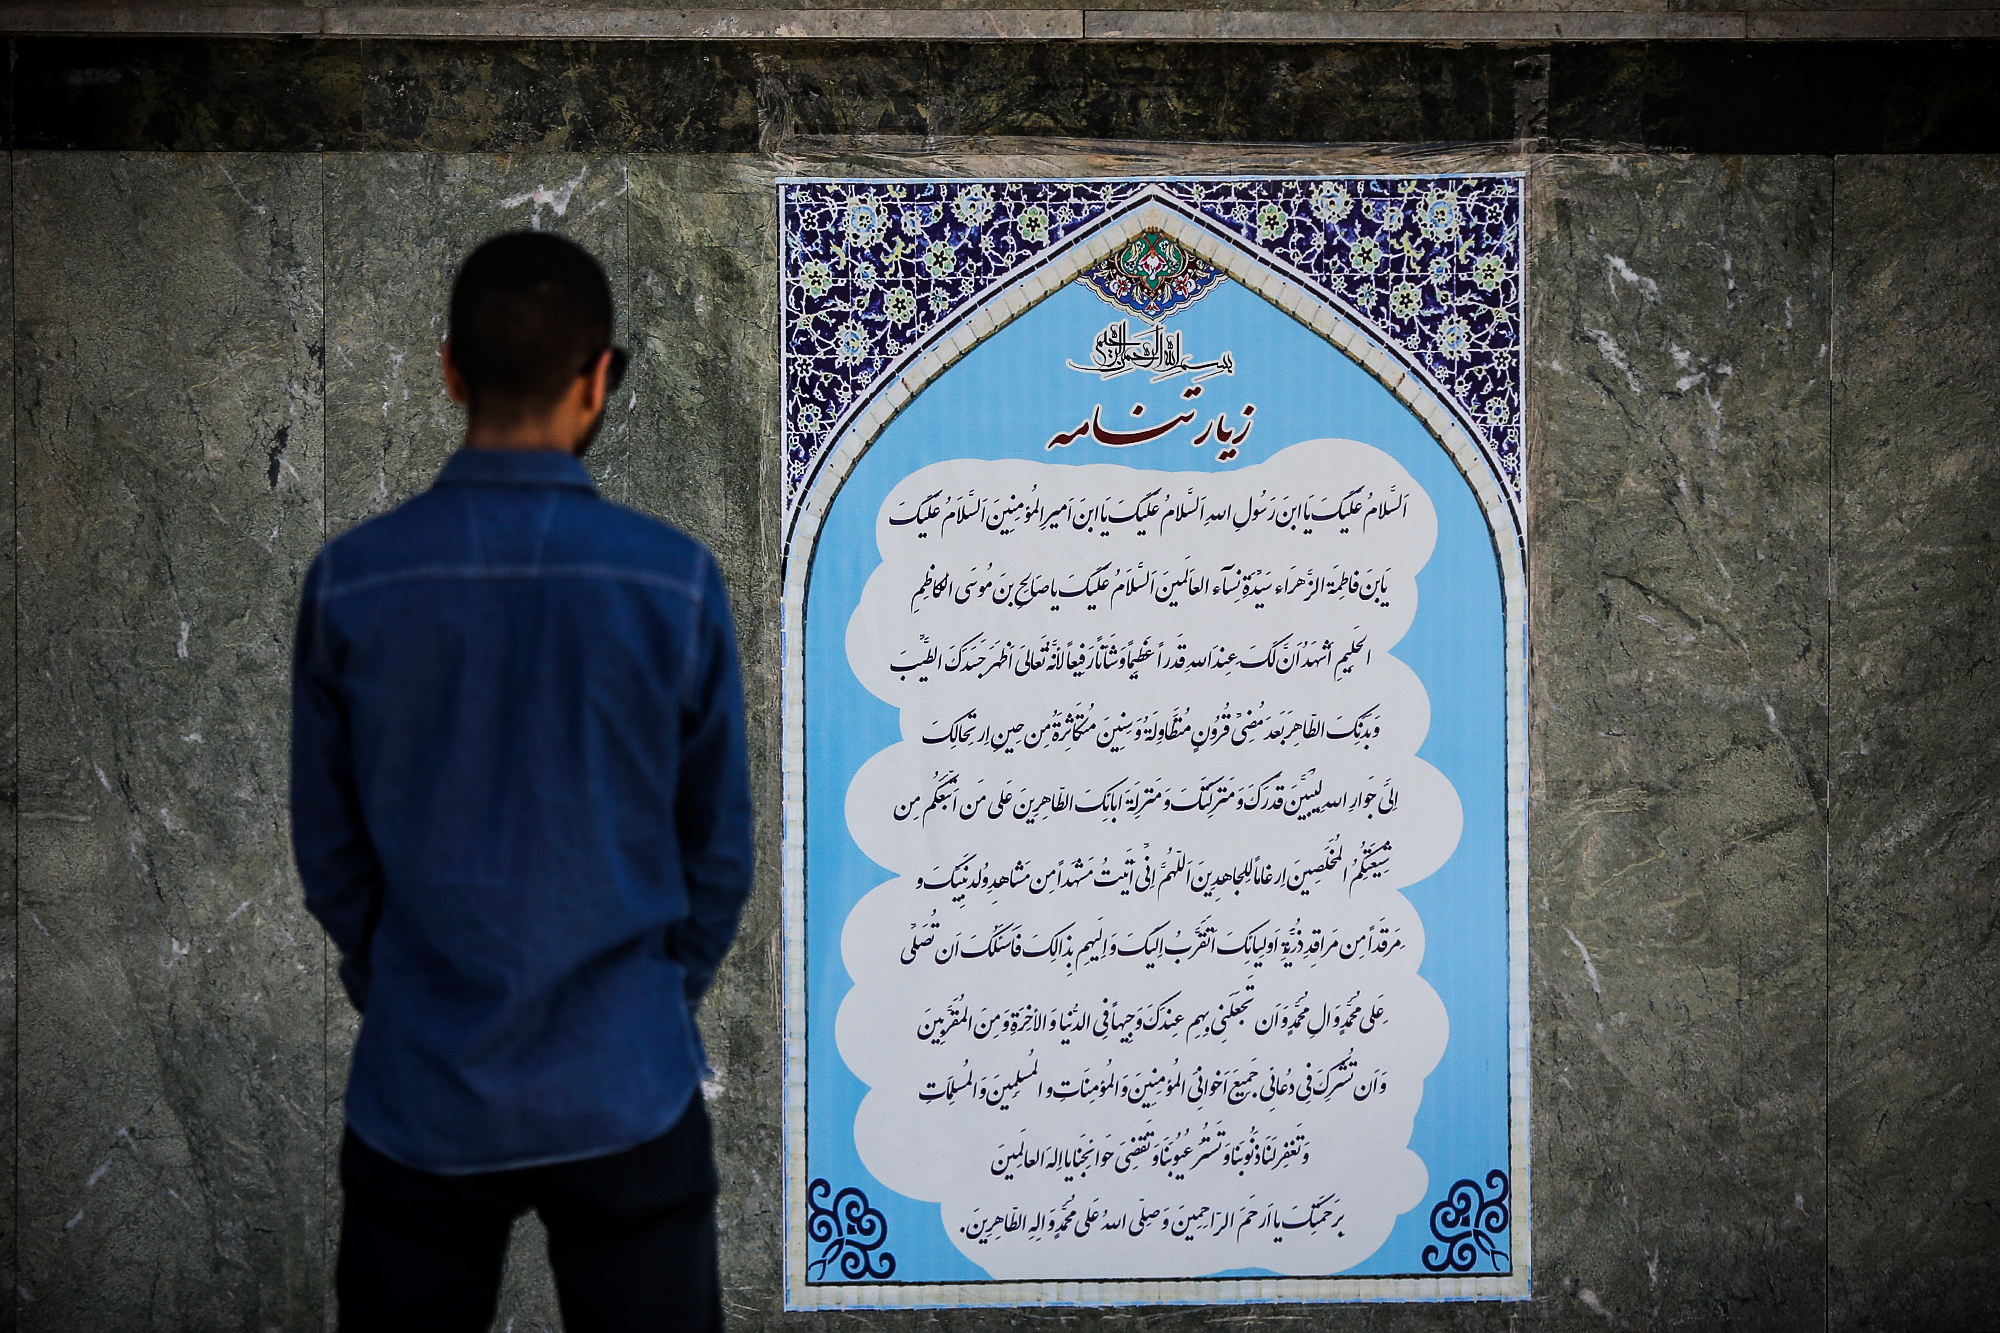 بسم الله الرحمن الرحیم
زیارتنامه
اَلسَّلامُ عَلَیکَ یَا ابنَ رَسُولِ اللهِ اَلسَّلامُ عَلَیکَ یَا ابنَ اَمیرِ المُؤمِنِینَ اَلسَّلامُ عَلَیکَ
یَابنَ فاطِمَة الزَّهراء سَیِّدَةِ نِسآء العالَمینَ اَلسَّلامُ عَلَیکَ یا صالِحِ بنَ مُوسَی الکاظِمِ
الحَلیمِ اَشهَدُ اَنَّ لَکَ عِندَ اللهِ قَدراً عَظیماً وَ شَاناً رَفیعاً لأنَّهُ تَعالیَ اَظهَرَ جَسَدَکَ الطیَّبَ
وَ بَدَنِکَ الطّاهِرَ بَعدَ مُضِیِّ قُرُونٍ مُتَطاوِلَةُ وَ سِنِینَ مُتَکاثِرَةُ مِن حِینِ اِرتِحالِکَ
اِلیَ جَوارِ اللهِ لِیُبیَّنَ قَدرَکَ وَ مَنزِلَتَکَ وَ مَنزِلَةَ ابائِکَ الطّاهِرِینَ عَلی مَن اتَّبَعَکُم مِن
شِیعَتِکُمُ المُخلَصِینَ اِرغاماً لِلجاهِدِینَ اَللّهُمَّ اِنّی اَتَیتُ مَشهَداً مِن مَشاهِدِ وُلدِ نَبِیِّکَ و
مَرقَداً مِن مَراقِدِ ذُرِّیَّةِ اَولیائِکَ اَتَقَرَّبُ اِلیکَ وَ اِلَیهِم بِذالِکَ فَاَسئَلُکَ اَن تُصَلّی
عَلی مُحَمَّدٍ وَ الِ مُحَمَّدٍ وَ اَن تَجعَلَنی بِهِم عِندَکَ وَجِیهاً فِی الدُّنیا وَ الاخِرَةِ وَ مِنَ المُقَرَّبِینَ
وَ اَن تُشرِکَ فِی دُعائی جَمِیعَ اَخوانِیَ المُؤمِنِینَ وَ المُؤمِنَاتِ و المُسلِمِینَ وَ المُسلِمَاتِ
وَ تَغفِرَ لَنَا ذُنُوبَنا وَ تَستُرَ عُیُوبَنا وَ تَقضِیَ حَوائِجَنا یا اِلهَ العالَمِینَ
بِرَحمَتِکَ یا اَرحَمَ الرّاحِمِینَ وَ صَلِّی اللهُ عَلی مُحَمَّدٍ وَ الِهِ الطّاهِرِینَ.